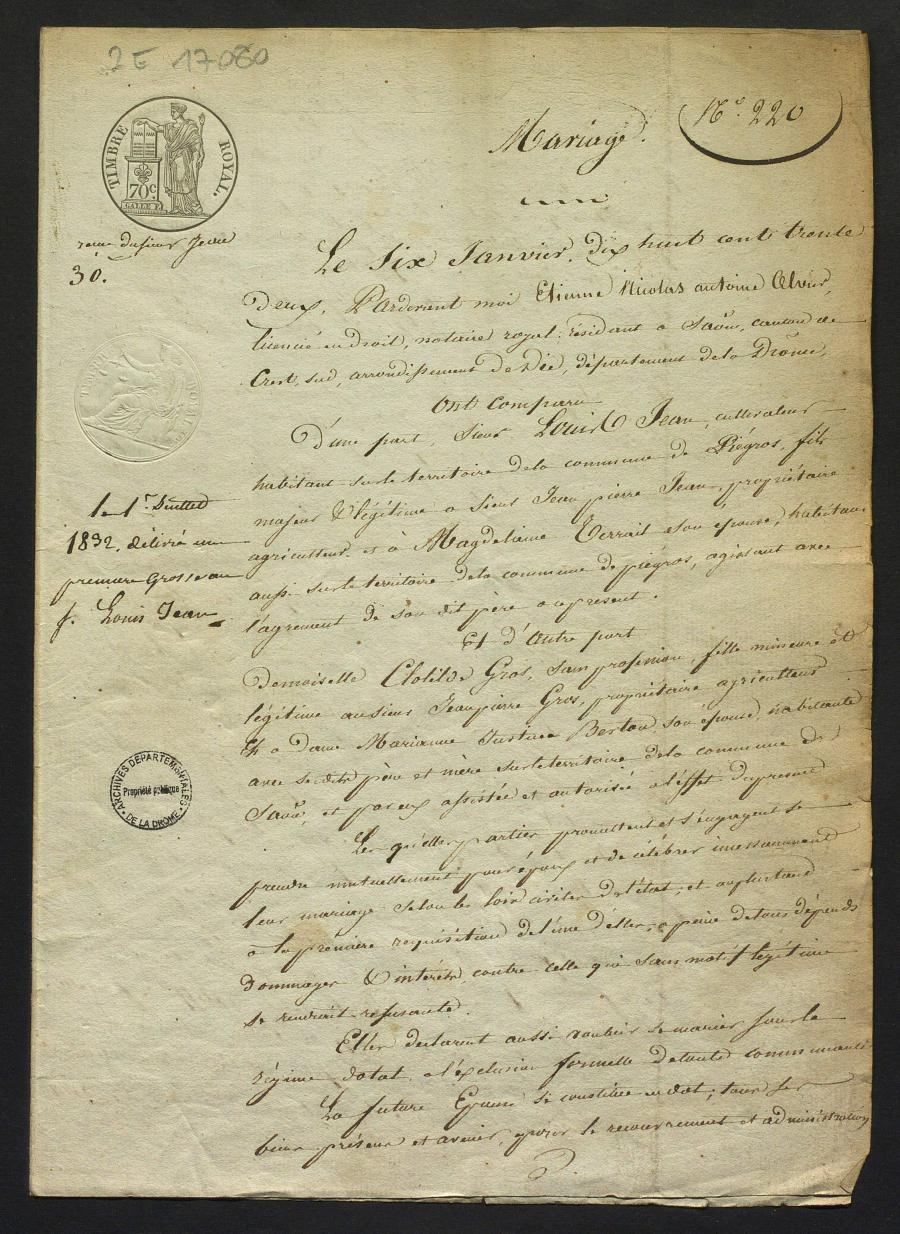 2 E 17080
N° 220
Mariage.
TIMBRE ROYAL.
70c.
30.
Le six Janvier, dix huit cent trente
deux, Pardevant moi Etienne Nicolas antoine
licencié en droit, notaire royal résidant à Saôu, canton de
Crest, sud, arrondissement de Die, département de la Drôme,
Ont comparu
D'une part, Sieur Louis Jean, cultivateur
habitant sur le territoire de la commune de Piégros, fils
majeur & légitime à sieur Jean pierre Jean, propriétaire
agriculteur, et à Magdelaine Terrail son épouse, habitans
aussi sur le territoire de la commune de piégros, agissant avec
l'agrément de son dit père à ce présent.
Et d'Autre part
Demoiselle Clotilde Gros, sans profession, fille mineure et
légitime au sieur Jean pierre Gros, propriétaire agriculteur
Et à Dame Marianne Justine Berton, son épouse, habitante
avec ses dits père et mère sur le territoire de la commune de
Saôu, et par eux assistée et autorisée à l'effet du présent
Lesquelles parties promettent et s'engagent se
prendre mutuellement pour époux et de célébrer incessamment
leur mariage selon les lois civiles de l'état, et au plus tard
à la première réquisition de l'une d'elles, à peine de tous dépends
dommages & intérêts contre celle qui sans motif légitime
se rendrait refusante.
Elles déclarent aussi vouloir se marier sous le
régime dotal, à l'exclusion formelle de toute communauté
La future Epouse se constitue en dot, tous ses
biens présens et avenir, pour le recouvrement et administration
le 1er Juillet
1832, délivré une
première Grosse au
s. Louis Jean
ARCHIVES DÉPARTEMENTALES
Propriété publique
DE LA DRÔME